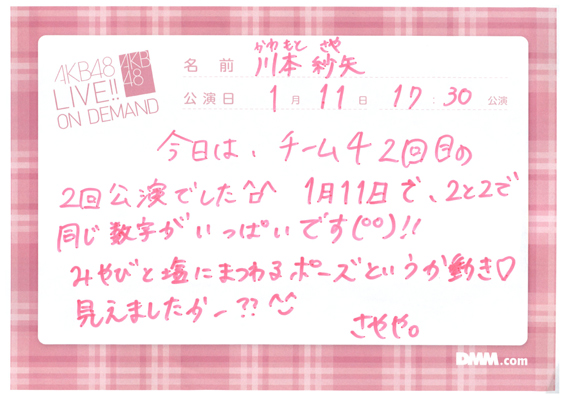 AKB48
LIVE!!
ON DEMAND
AKB
48
かわもと さや
名前 川本 紗矢
公演日 1月 11日 17:30 公演
今日は、チーム4 2回目の
2回公演でした^^ 1月11日で、2と2で
同じ数字がいっぱいです(°°)!!
みやびと塩にまつわるポーズというか動き♡
見えましたかー??^^
さやや。
DMM.com